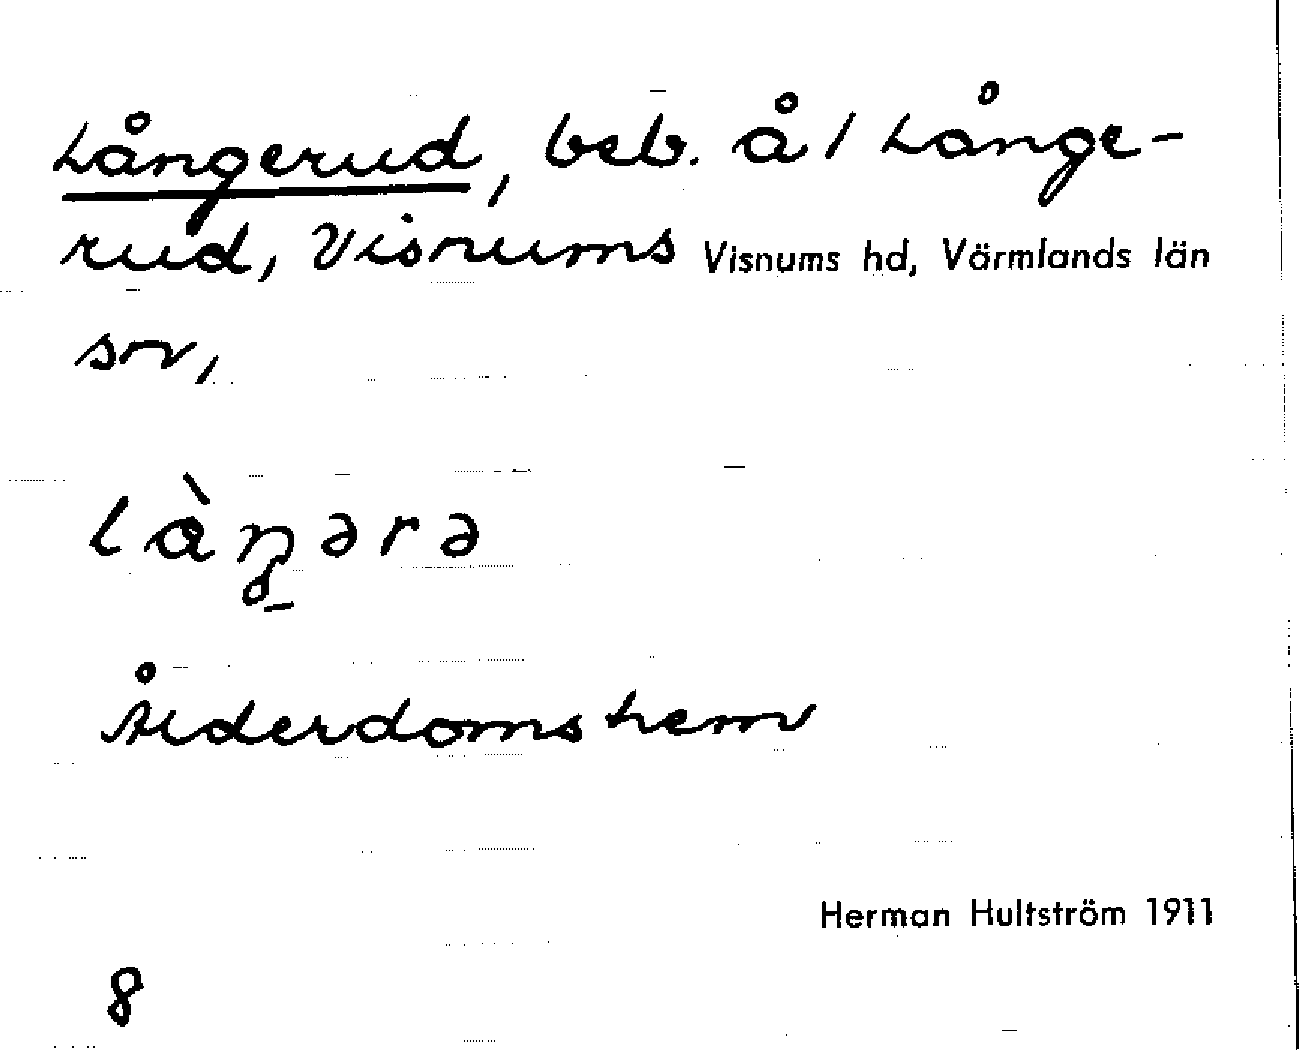 Långerud, beb. å 1 Långe-
rud, Visnums Visnums hd, Värmlands län
sn,
làŋərə
Ålderdomshem
Herman Hultström 1911
8